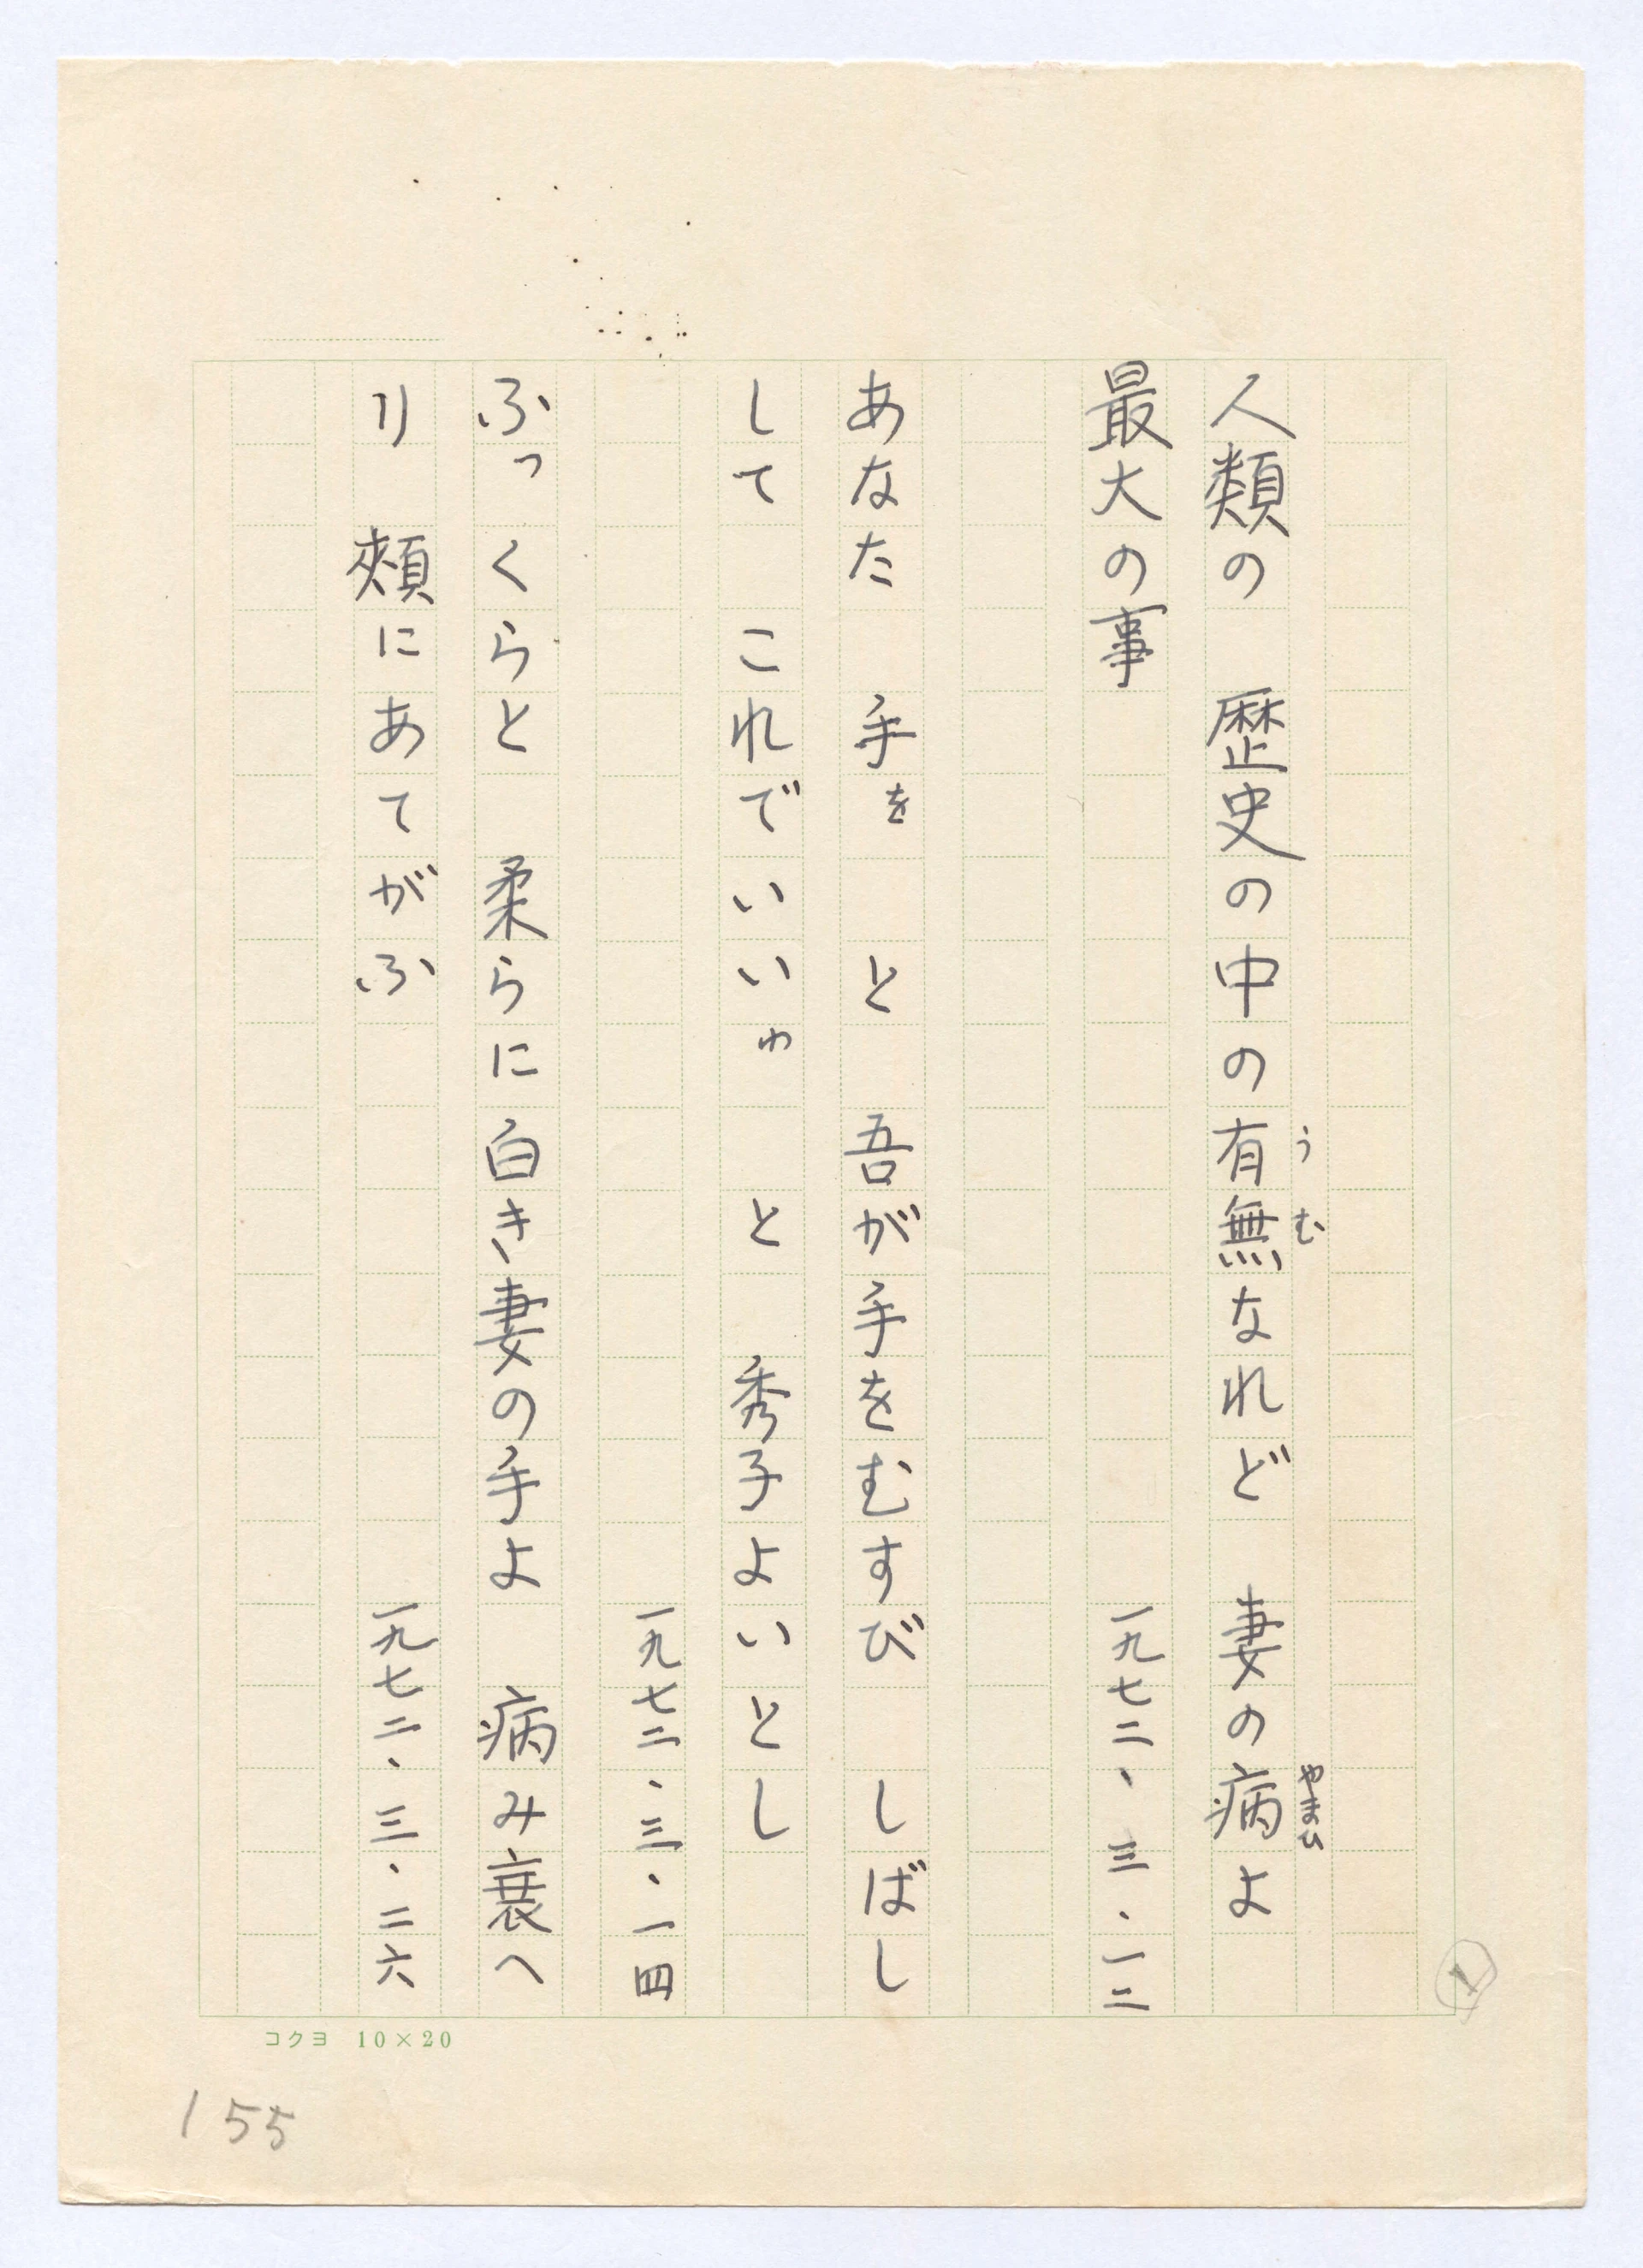 人類の　歴史の中の有無なれど　妻の病よ
うむ
やまひ
最大の事
一九七二、三、一二
あなた　手を　と　吾が手をむすび　しばし
して　これでいいゎ　と　秀子よいとし
一九七二、三、一四
ふっくらと　柔らに白き妻の手よ　病み衰へ
り　頰にあてがふ
一九七二、三、二六
コクヨ 10×20
155